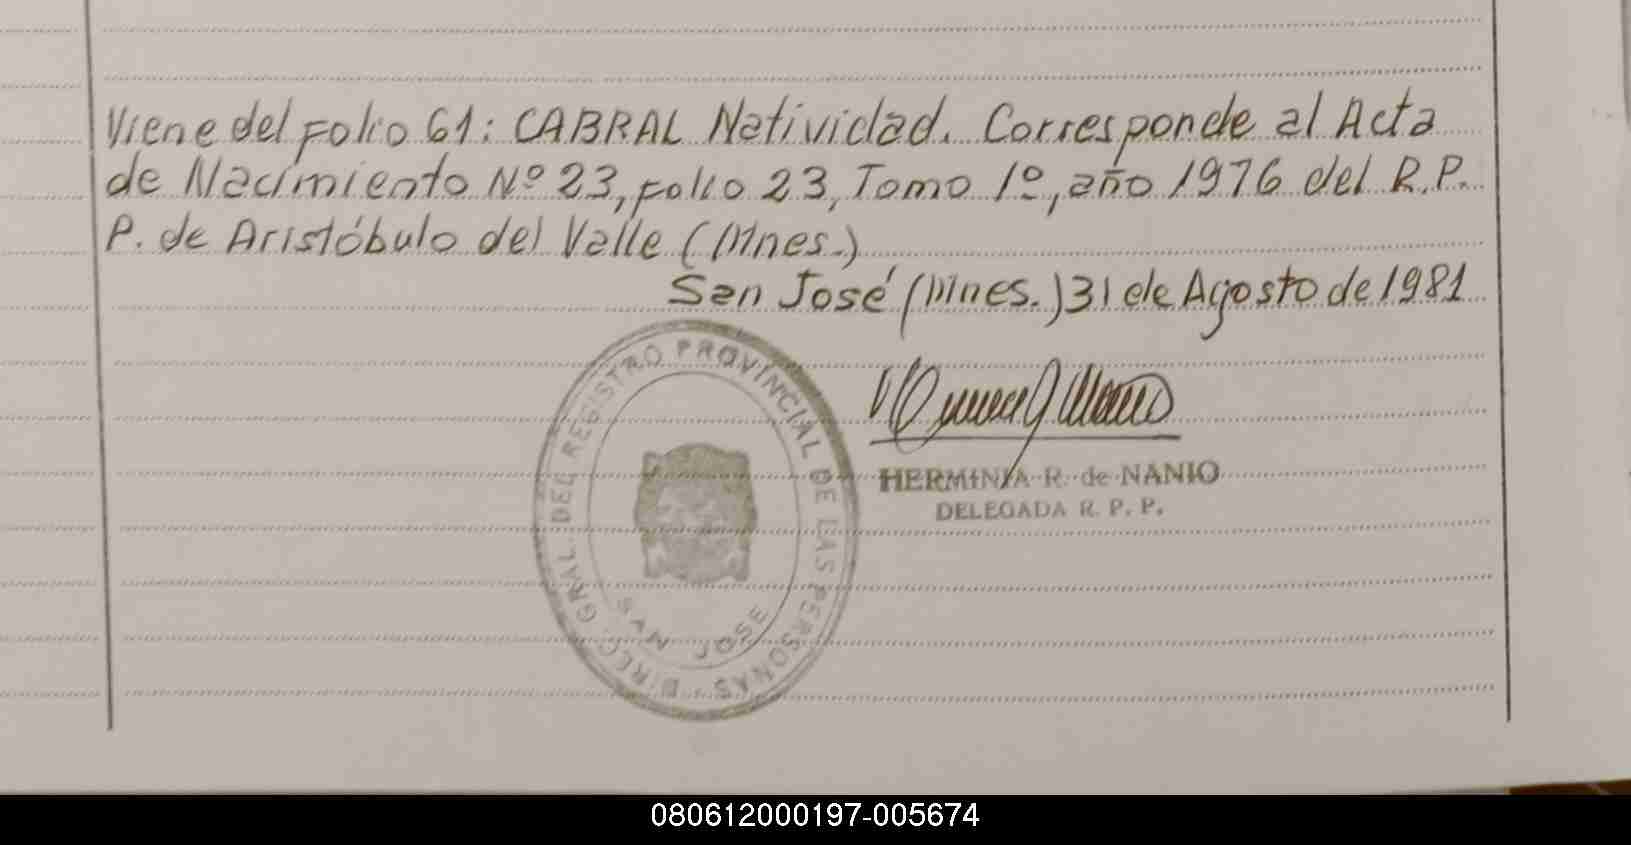 Viene del Folio 61: CABRAL Natividad. Corresponde al Acta
de Nacimiento Nº 23, Folio 23, Tomo 1º, año 1976 del R.P.
P. de Aristóbulo del Valle (Mnes.)
San José (Mnes.) 31 de Agosto de 1981
HERMINIA R. de NANIO
DELEGADA R. P. P.
DIREC. GRAL. DEL REGISTRO PROVINCIAL DE LAS PERSONAS
SAN JOSE
080612000197-005674